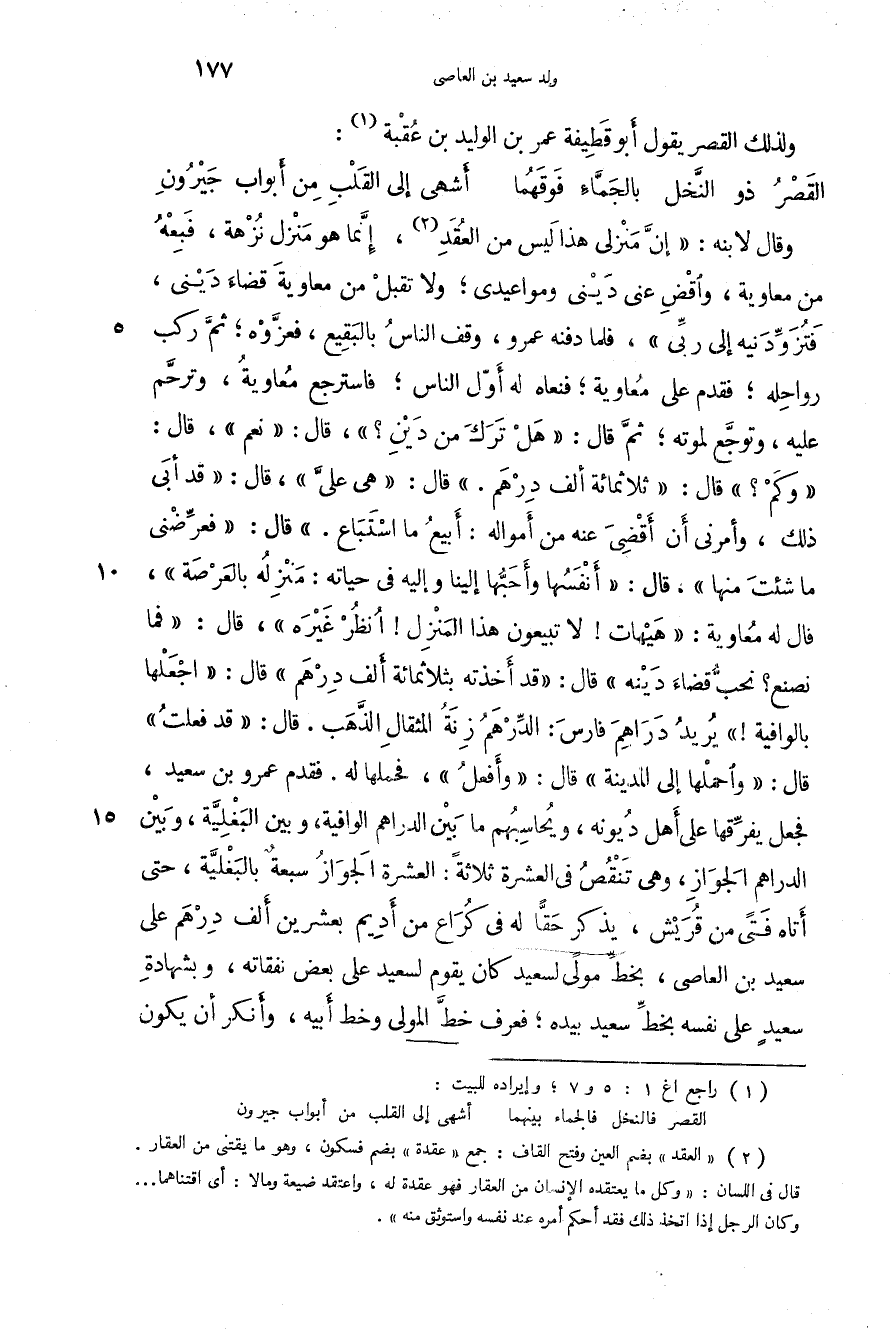 ولد سعيد بن العاصى ١٧٧
ولذلك القصر يقول أبو قَطِيفة عمر بن الوليد بن عُقْبة (١) :
القَصْرُ ذو النَّخل بالجَمَّاءِ فَوقَهُما أشهى إلى القَلْبِ مِن أَبواب جَيْرُونِ
وقال لابنه : « إنَّ مَنْزلى هذا لَيس من العُقَدِ (٢) ، إنَّما هو مَنْزل نُزْهة ، فَبِعْهُ
من معاوية ، وٱقْضِ عنى دَيْنى ومواعيدى ؛ ولا تقبلْ من معاويةَ قضاءَ دَيْنى ،
فَتُزَوِّدَنيه إلى ربِّى » ، فلما دفنه عمرو ، وقف الناسُ بالبَقِيع ، فعزَّوْه ؛ ثمَّ ركب ٥
رواحِله ؛ فقدم على مُعاوية ؛ فنعاه له أَوّل الناس ؛ فاسترجع مُعاويةُ ، وترحَّم
عليه ، وتوجَّع لموته ؛ ثمَّ قال : « هَلْ تَرَكَ من دَيْنِ ؟ » ، قال : « نعم » ، قال :
« وكَمْ ؟ » قال : « ثلاثمائة ألف دِرْهَم . » قال : « هى علىَّ » ، قال : « قد أبَى
ذلك ، وأمرنى أن أَقْضِىَ عنه من أمواله : أَبيعُ ما اسْتَبَاع . » قال : « فعرِّضْنى
ما شئتَ منها » ، قال : « أَنْفَسُها وأَحَبُّها إلينا وإليه فى حياته : مَنْزِلُه بالعَرْصَة » ، ١٠
فال له مُعاوية : « هَيْهات ! لا تبيعون هذا المَنْزِل ! أنظُرْ غَيْرَه » ، قال : « فما
نصنع؟ نحبُّ قضاءَ دَيْنه » قال : «قد أخذته بثلاثمائة ألف دِرْهَم » قال : « اجْعَلْها
بالوافية !» يُرِيدُ دَرَاهِمَ فارسَ: الدِّرْهَمُ زِنَةُ المثقال الذَّهَب . قال : « قد فعلتُ»
قال : « وٱحملْها إلى المدينة » قال : « وأَفعلُ » ، فحملها له . فقدم عمرو بن سعيد ،
فجعل يفرِّقها على أهل دُيونه ، ويُحاسِبُهم ما بَيْن الدراهم الوافية، وبين البَغْلِيَّة ، وبَيْن ١٥
الدراهم الجَوَازِ ، وهى تَنْقُصُ فى العشرة ثلاثةً : العشرة الجَوَازُ سبعةٌ بالبَغْليَّة ، حتى
أتاه فَتًى من قُرَيْش ، يذكر حَقًّا له فى كُرَاع من أَدِيم بعشرين ألف دِرْهَم على
سعيد بن العاصى ، بخطِّ مولًى لسعيد كان يقوم لسعيد على بعض نفقاته ، وبشهادةِ
سعيدٍ على نفسه بخطِّ سعيد بيده ؛ فعرف خطَّ المولى وخط أبيه ، وأَنكر أن يكون
(١) راجع اغ ١ : ٥ و ٧ ؛ وإيراده للبيت :
القصر فالنخل فالجماء بينهما أشهى إلى القلب من أبواب جيرون
(٢) « العقد » بضم العين وفتح القاف : جمع « عقدة » بضم فسكون ، وهو ما يقتنى من العقار .
قال فى اللسان : « وكل ما يعتقده الإنسان من العقار فهو عقدة له ، واعتقد ضيعة ومالا : أى اقتناهما...
وكان الرجل إذا اتخذ ذلك فقد أحكم أمره عند نفسه واستوثق منه » .